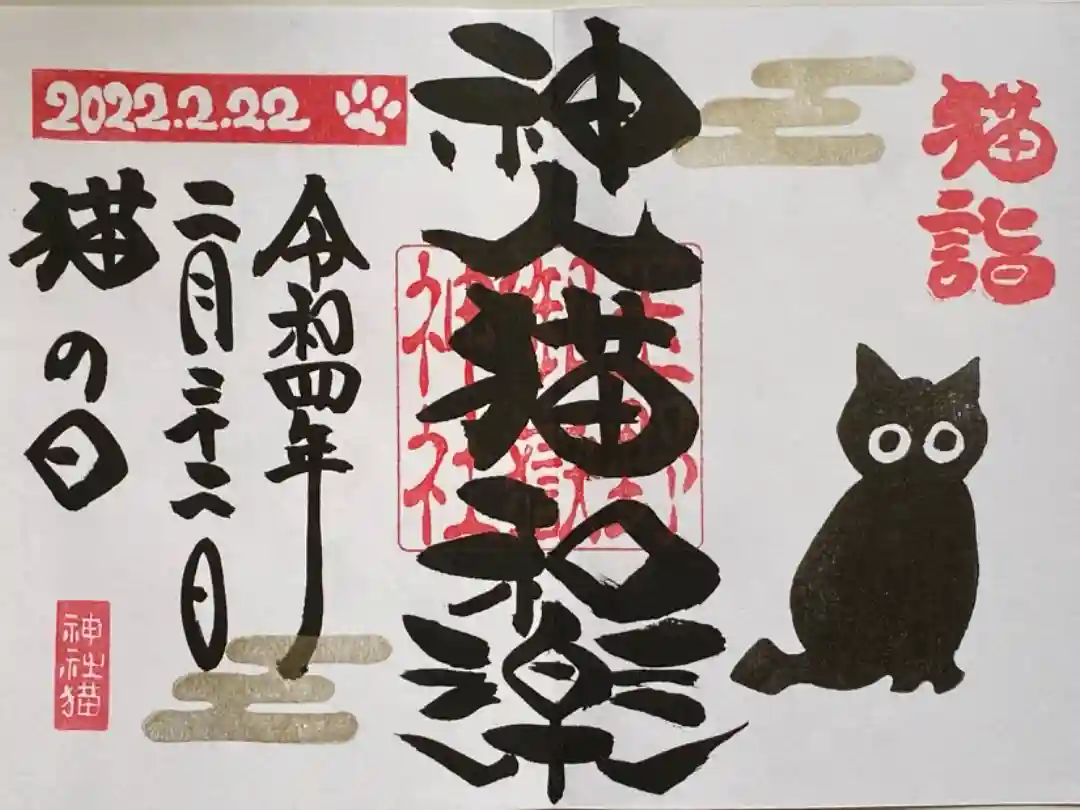 猫詣
神人猫和楽
御嶽
神社
2022.2.22
令和四年
二月二十二日
猫の日
神社猫